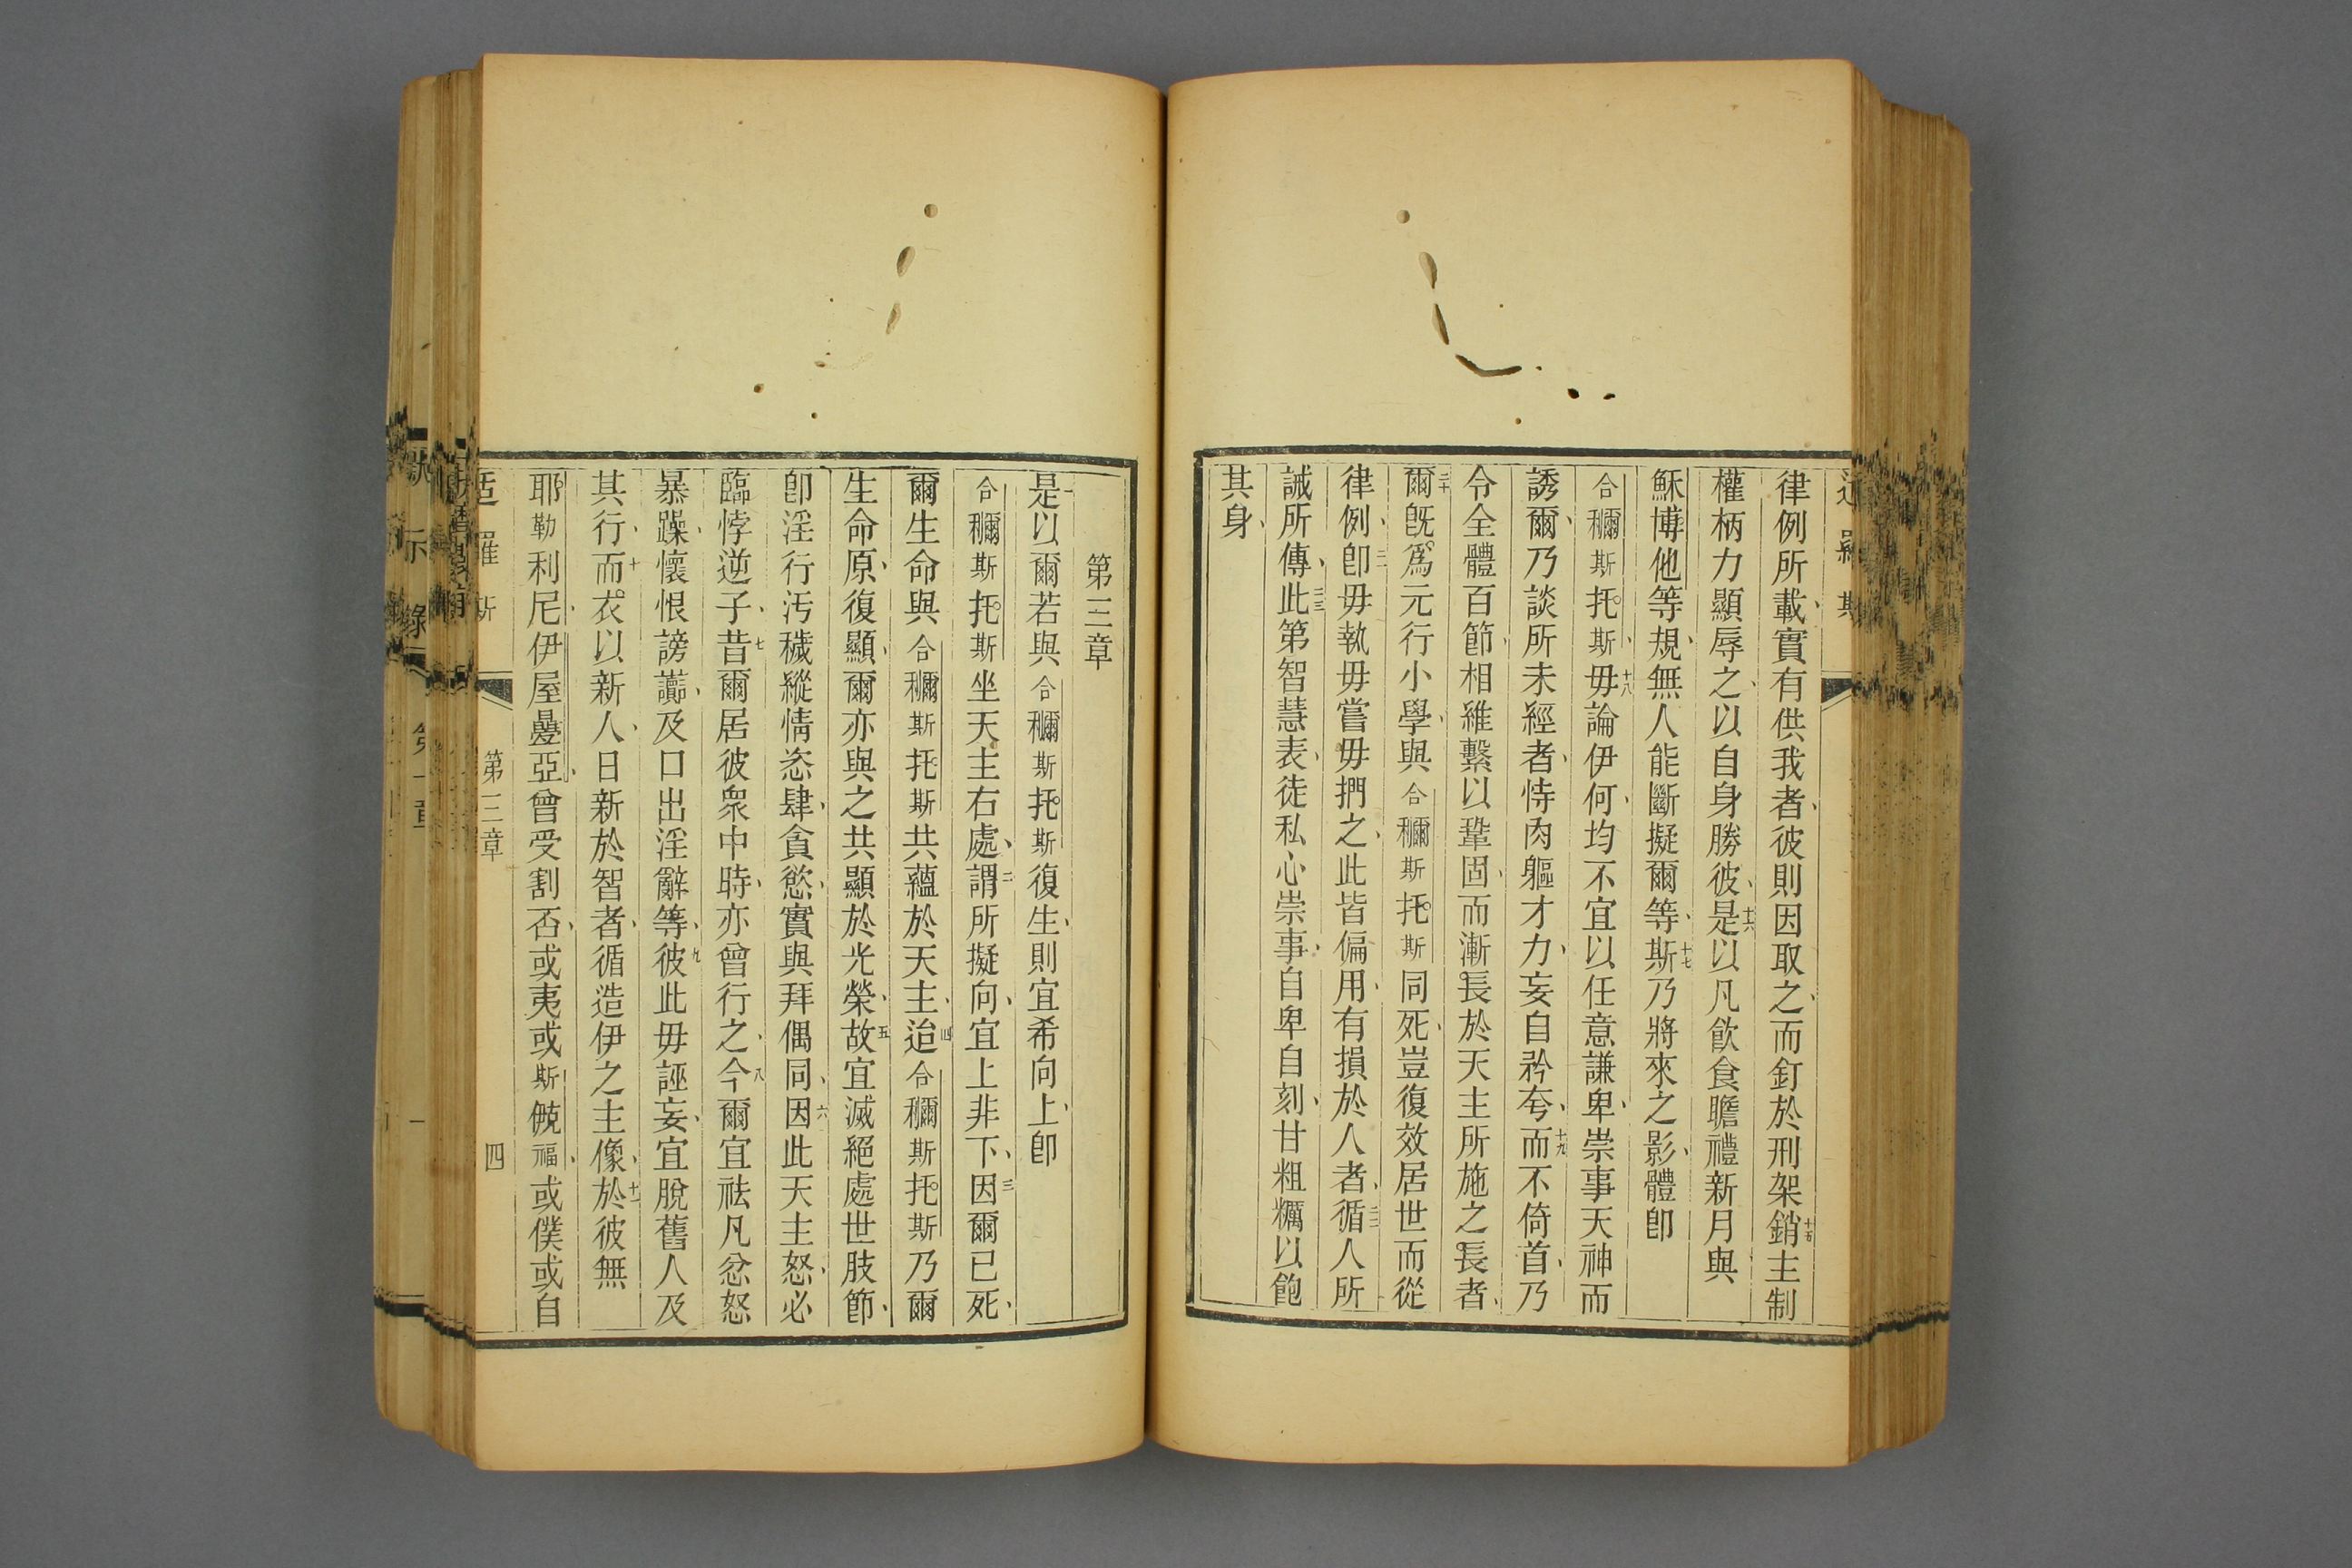 律例所載實有供我者彼則因取之而釘於刑架十五銷主制
權柄力顯辱之以自身勝彼十六是以凡飲食瞻禮新月與
穌博他等規無人能斷擬爾等十七斯乃將來之影體卽
合穪斯托斯十八毋論伊何均不宜以任意謙卑崇事天神而
誘爾乃談所未經者恃肉軀才力妄自矜夸十九而不倚首乃
令全體百節相維繫以鞏固而漸長於天主所施之長者
二十爾旣爲元行小學與合穪斯托斯同死豈復效居世而從
律例二一卽毋執毋嘗毋捫之此皆偏用有損於人者二二循人所
誡所傳二三此第智慧表徒私心崇事自卑自刻甘粗糲以飽
其身
第三章
一是以爾若與合穪斯托斯復生則宜希向上卽
合穪斯托斯坐天主右處二謂所擬向宜上非下三因爾已死
爾生命與合穪斯托斯共蘊於天主四迨合穪斯托斯乃爾
生命原復顯爾亦與之共顯於光榮五故宜滅絕處世肢節
卽淫行汚穢縱情恣肆貪慾實與拜偶同六因此天主怒必
臨悖逆子七昔爾居彼眾中時亦曾行之八今爾宜祛凡忿怒
暴躁懷恨謗讟及口出淫辭等九彼此毋誣妄宜脫舊人及
其行十而衣以新人日新於智者循造伊之主像十一於彼無
耶勒利尼伊屋疊亞曾受割否或夷或斯僥福或僕或自
适羅斯
第三章
四